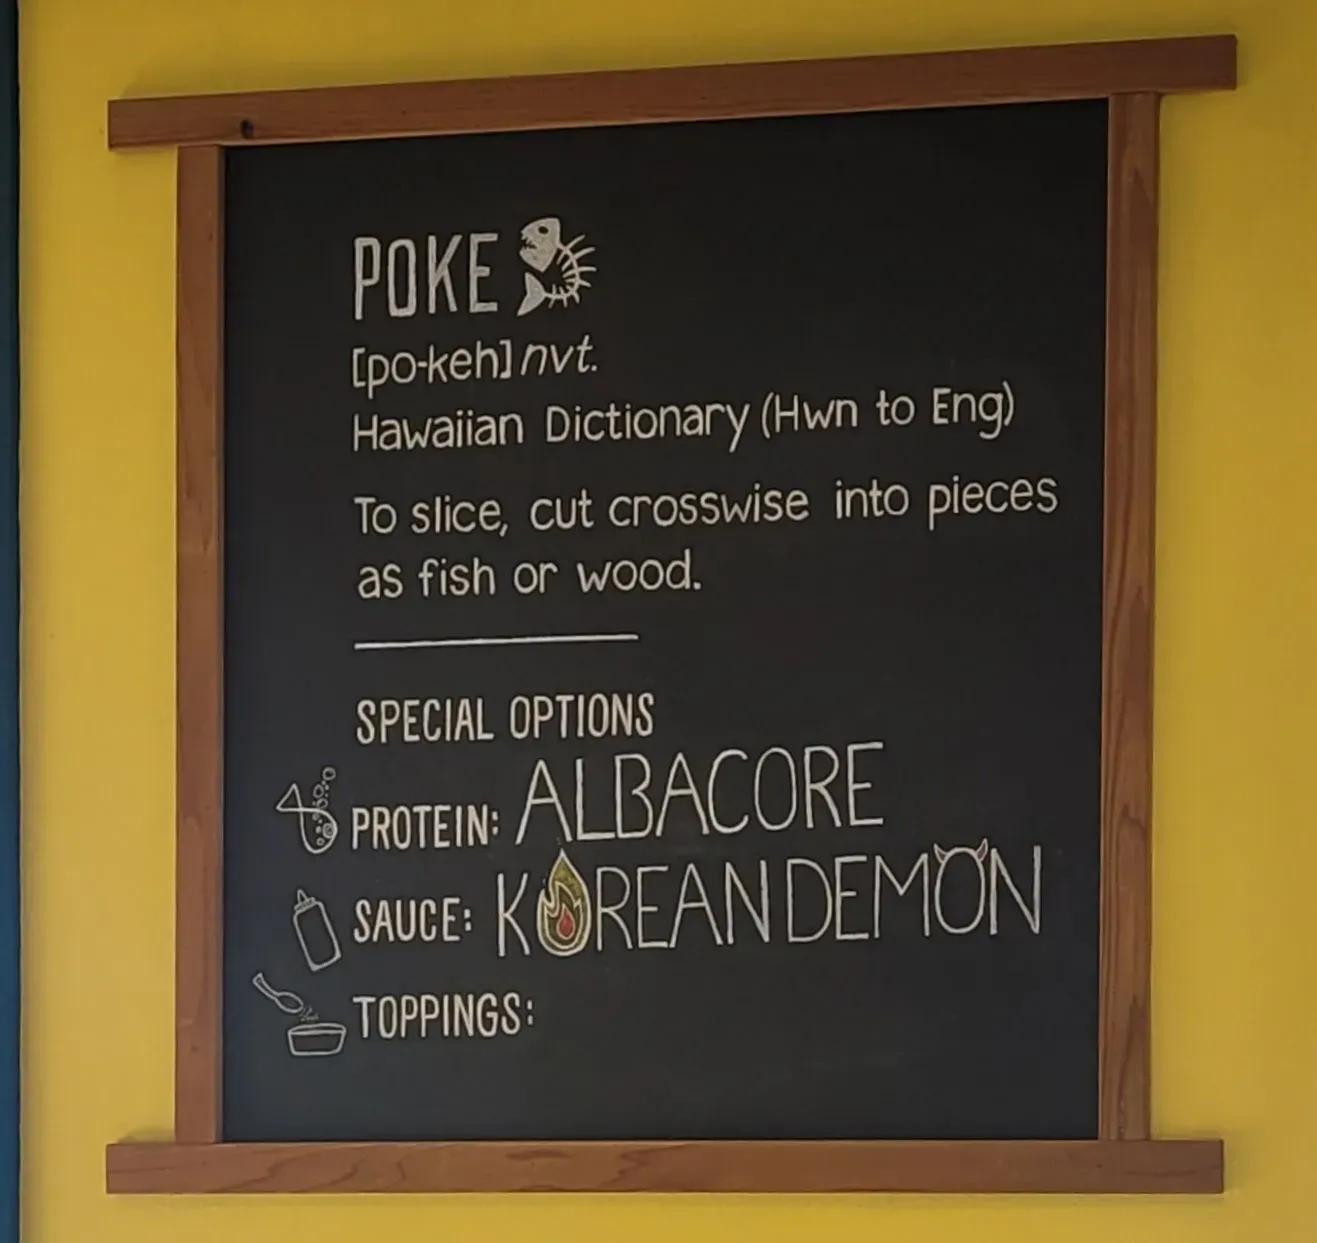 POKE
[po-keh] nvt.
Hawaiian Dictionary (Hwn to Eng)
To slice, cut crosswise into pieces
as fish or wood.
SPECIAL OPTIONS
PROTEIN: ALBACORE
SAUCE: KOREAN DEMON
TOPPINGS: